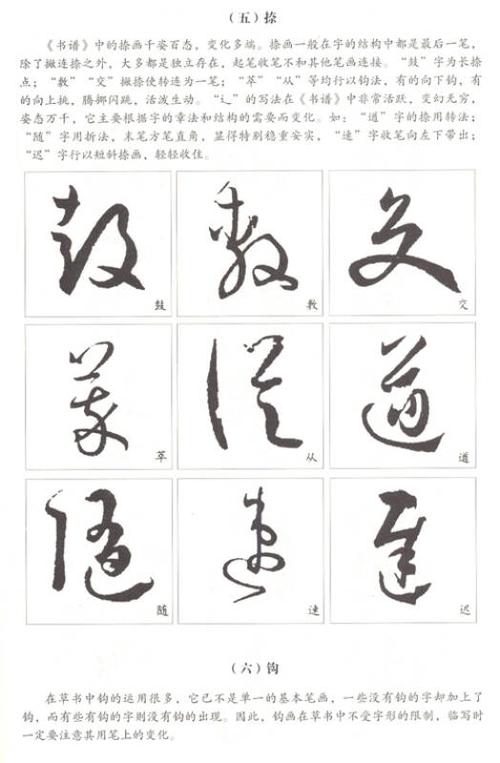 （五）捺
《书谱》中的捺画千姿百态，变化多端。捺画一般在字的结构中都是最后一笔，
除了撇连捺之外，大多都是独立存在，起笔收笔不和其他笔画连接。“鼓”字为长捺
点；“教”“交”撇捺使转连为一笔；“萃”“从”等均行以钩法，有的向下钩，有
的向上挑，腾掷闪跳，活泼生动。“辶”的写法在《书谱》中非常活跃，变幻无穷，
姿态万千，它主要根据字的章法和结构的需要而变化。如：“道”字的捺用转法；
“随”字用折法，末笔方笔直角，显得特别稳重安实，“速”字收笔向左下带出；
“迟”字行以短斜捺画，轻轻收住。
鼓 教 交
萃 从 道
随 速 迟
（六）钩
在草书中钩的运用很多，它已不是单一的基本笔画，一些没有钩的字却加上了
钩，而有些有钩的字则没有钩的出现。因此，钩画在草书中不受字形的限制，临写时
一定要注意其用笔上的变化。